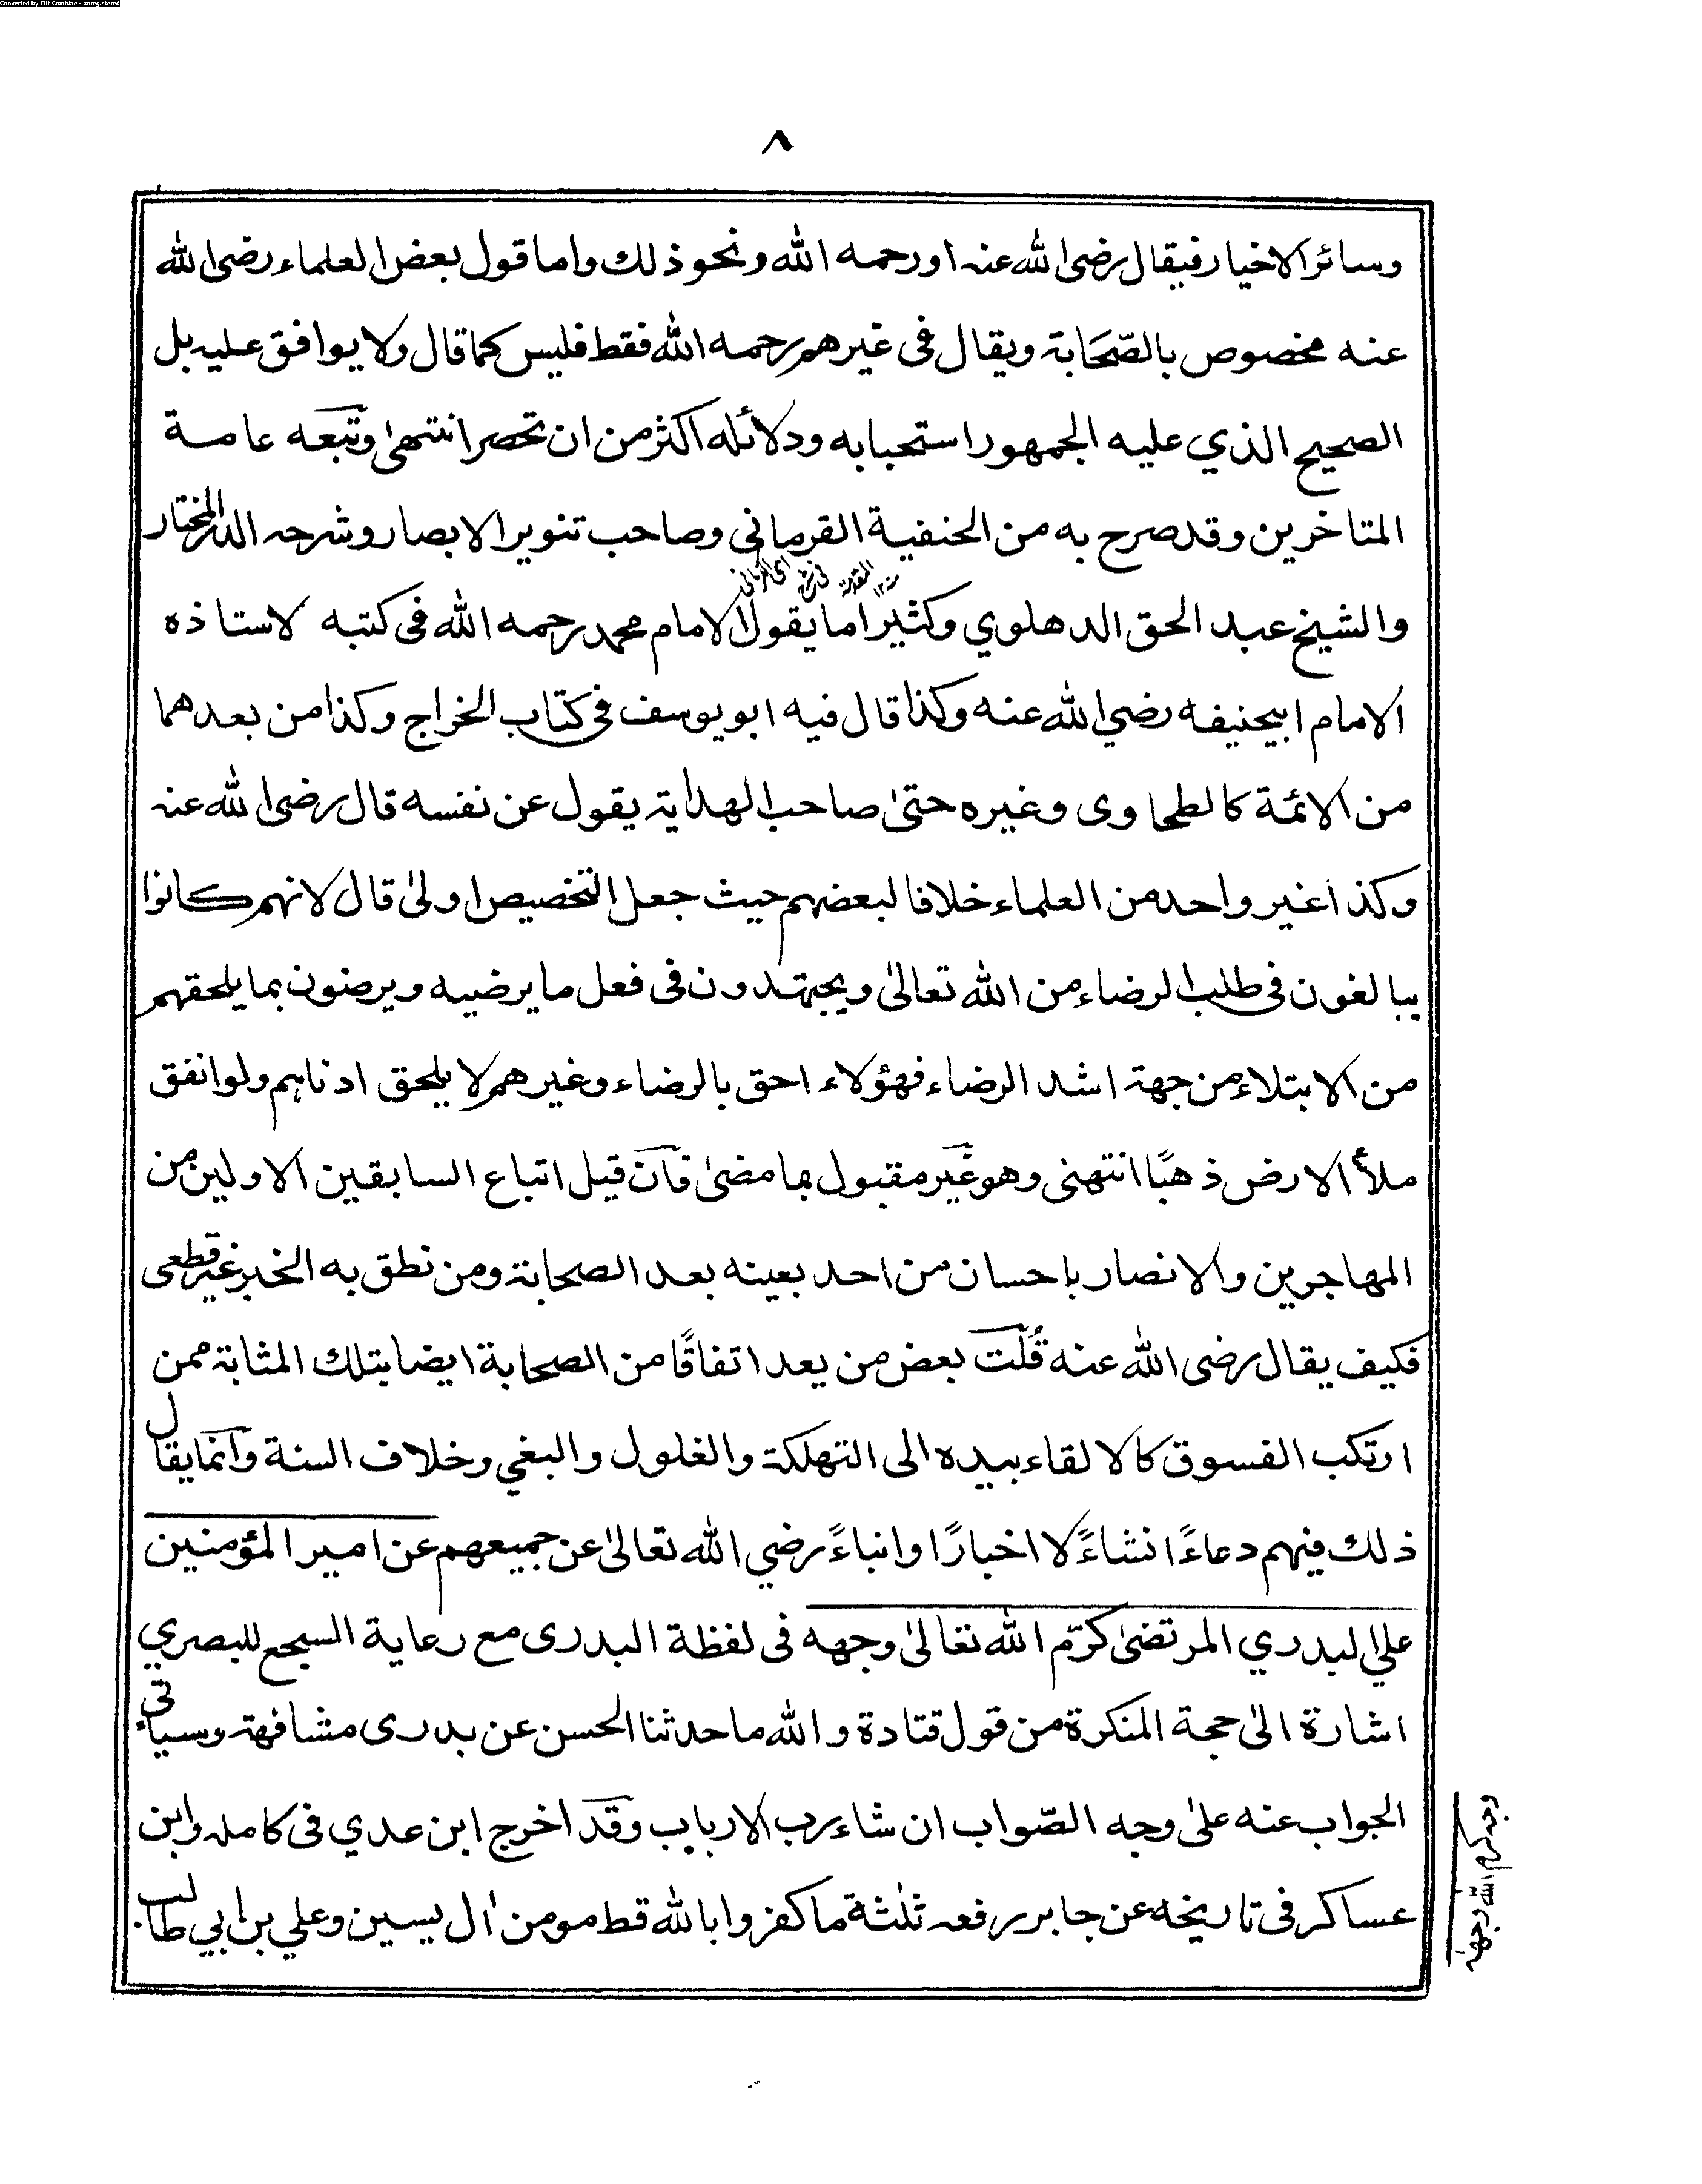 Converted by Tiff Combine - unregistered
٨
وسائر الاخيار فيقال رضى الله عنه او رحمه الله ونحو ذلك واما قول بعض العلماء رضى الله
عنه مخصوص بالصّحَابة ويقال فى غيرهم رحمه الله فقط فليس كما قال ولا يوافق عليه بل
الصحيح الذي عليه الجمهور استحبابه ودلائله اكثر من ان تحصر انتهىٰ وتبعه عامة
المتاخرين وقد صرح به من الحنفية القرمانى وصاحب تنوير الابصار وشرحه الدر المختار
اى الكرمانى فى شرح المقدمة ١٢ منه
والشيخ عبد الحق الدهلوي وكثيرا ما يقول الامام محمد رحمه الله فى كتبه لاستاذه
الامام ابيحنيفه رضي الله عنه وكذا قال فيه ابو يوسف فى كتاب الخراج وكذا من بعدهما
من الائمة كالطحاوى وغيره حتىٰ صاحب الهداية يقول عن نفسه قال رضى الله عنه
وكذا غير واحد من العلماء خلافا لبعضهم حيث جعل التخصيص اولىٰ قال لانهم كانوا
يبالغون فى طلب الرضاء من الله تعالىٰ ويجتهدون فى فعل ما يرضيه ويرضون بما يلحقهم
من الابتلاء من جهة اشد الرضاء فهؤلاء احق بالرضاء وغيرهم لا يلحق ادناهم ولو انفق
ملأ الارض ذهبًا انتهىٰ وهو غير مقبول بما مضىٰ فان قيل اتباع السابقين الاولين من
المهاجرين والانصار باحسان من احد بعينه بعد الصحابة ومن نطق به الخبر غير قطعى
فكيف يقال رضى الله عنه قُلت بعض من يعد اتفاقًا من الصحابة ايضا بتلك المثابة ممن
ارتكب الفسوق كالالقاء بيده الى التهلكة والغلول والبغي وخلاف السنة وانما يقال
ذلك فيهم دعاءً انشاءً لا اخبارًا وانباءً رضي الله تعالىٰ عن جميعهم عن امير المؤمنين
علي البدري المرتضىٰ كرّم الله تعالىٰ وجهه فى لفظة البدرى مع رعاية السجع للبصري
اشارة الىٰ حجة المنكرة من قول قتادة والله ما حدثنا الحسن عن بدرى مشافهة وسيأتى
الجواب عنه علىٰ وجه الصّواب ان شاء رب الارباب وقد اخرج ابن عدي فى كامله وابن
عساكر فى تاريخه عن جابر رفعه ثلٰثة ما كفروا بالله قط مومن اٰل يسين وعلي بن ابي طالب
وجه كرم الله وجهه